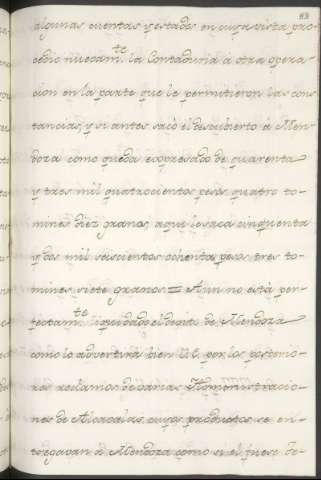 83
algunas cuentas y estados en cuya vista pro-
cedio nuevam.te la Contaduria á otra opera-
cion en la parte que le permitieron las cons
tancias, y si antes sacó el descubierto á Men-
doza como queda expresado de quarenta
y tres mil quatrocientos pesos quatro to-
mines diez granos, aqui lo saca cinquenta
y dos mil seiscientos ochenta pesos tres to-
mines siete granos = Aun no está per-
fectam.te liquidado el devito de Mendoza
como lo advertirá bien U.E. por los posterio-
res reclamos de varias Administracio-
nes de Alcavalas, cuyos productos se en-
tregavan á Mendoza como si el fuese Te-